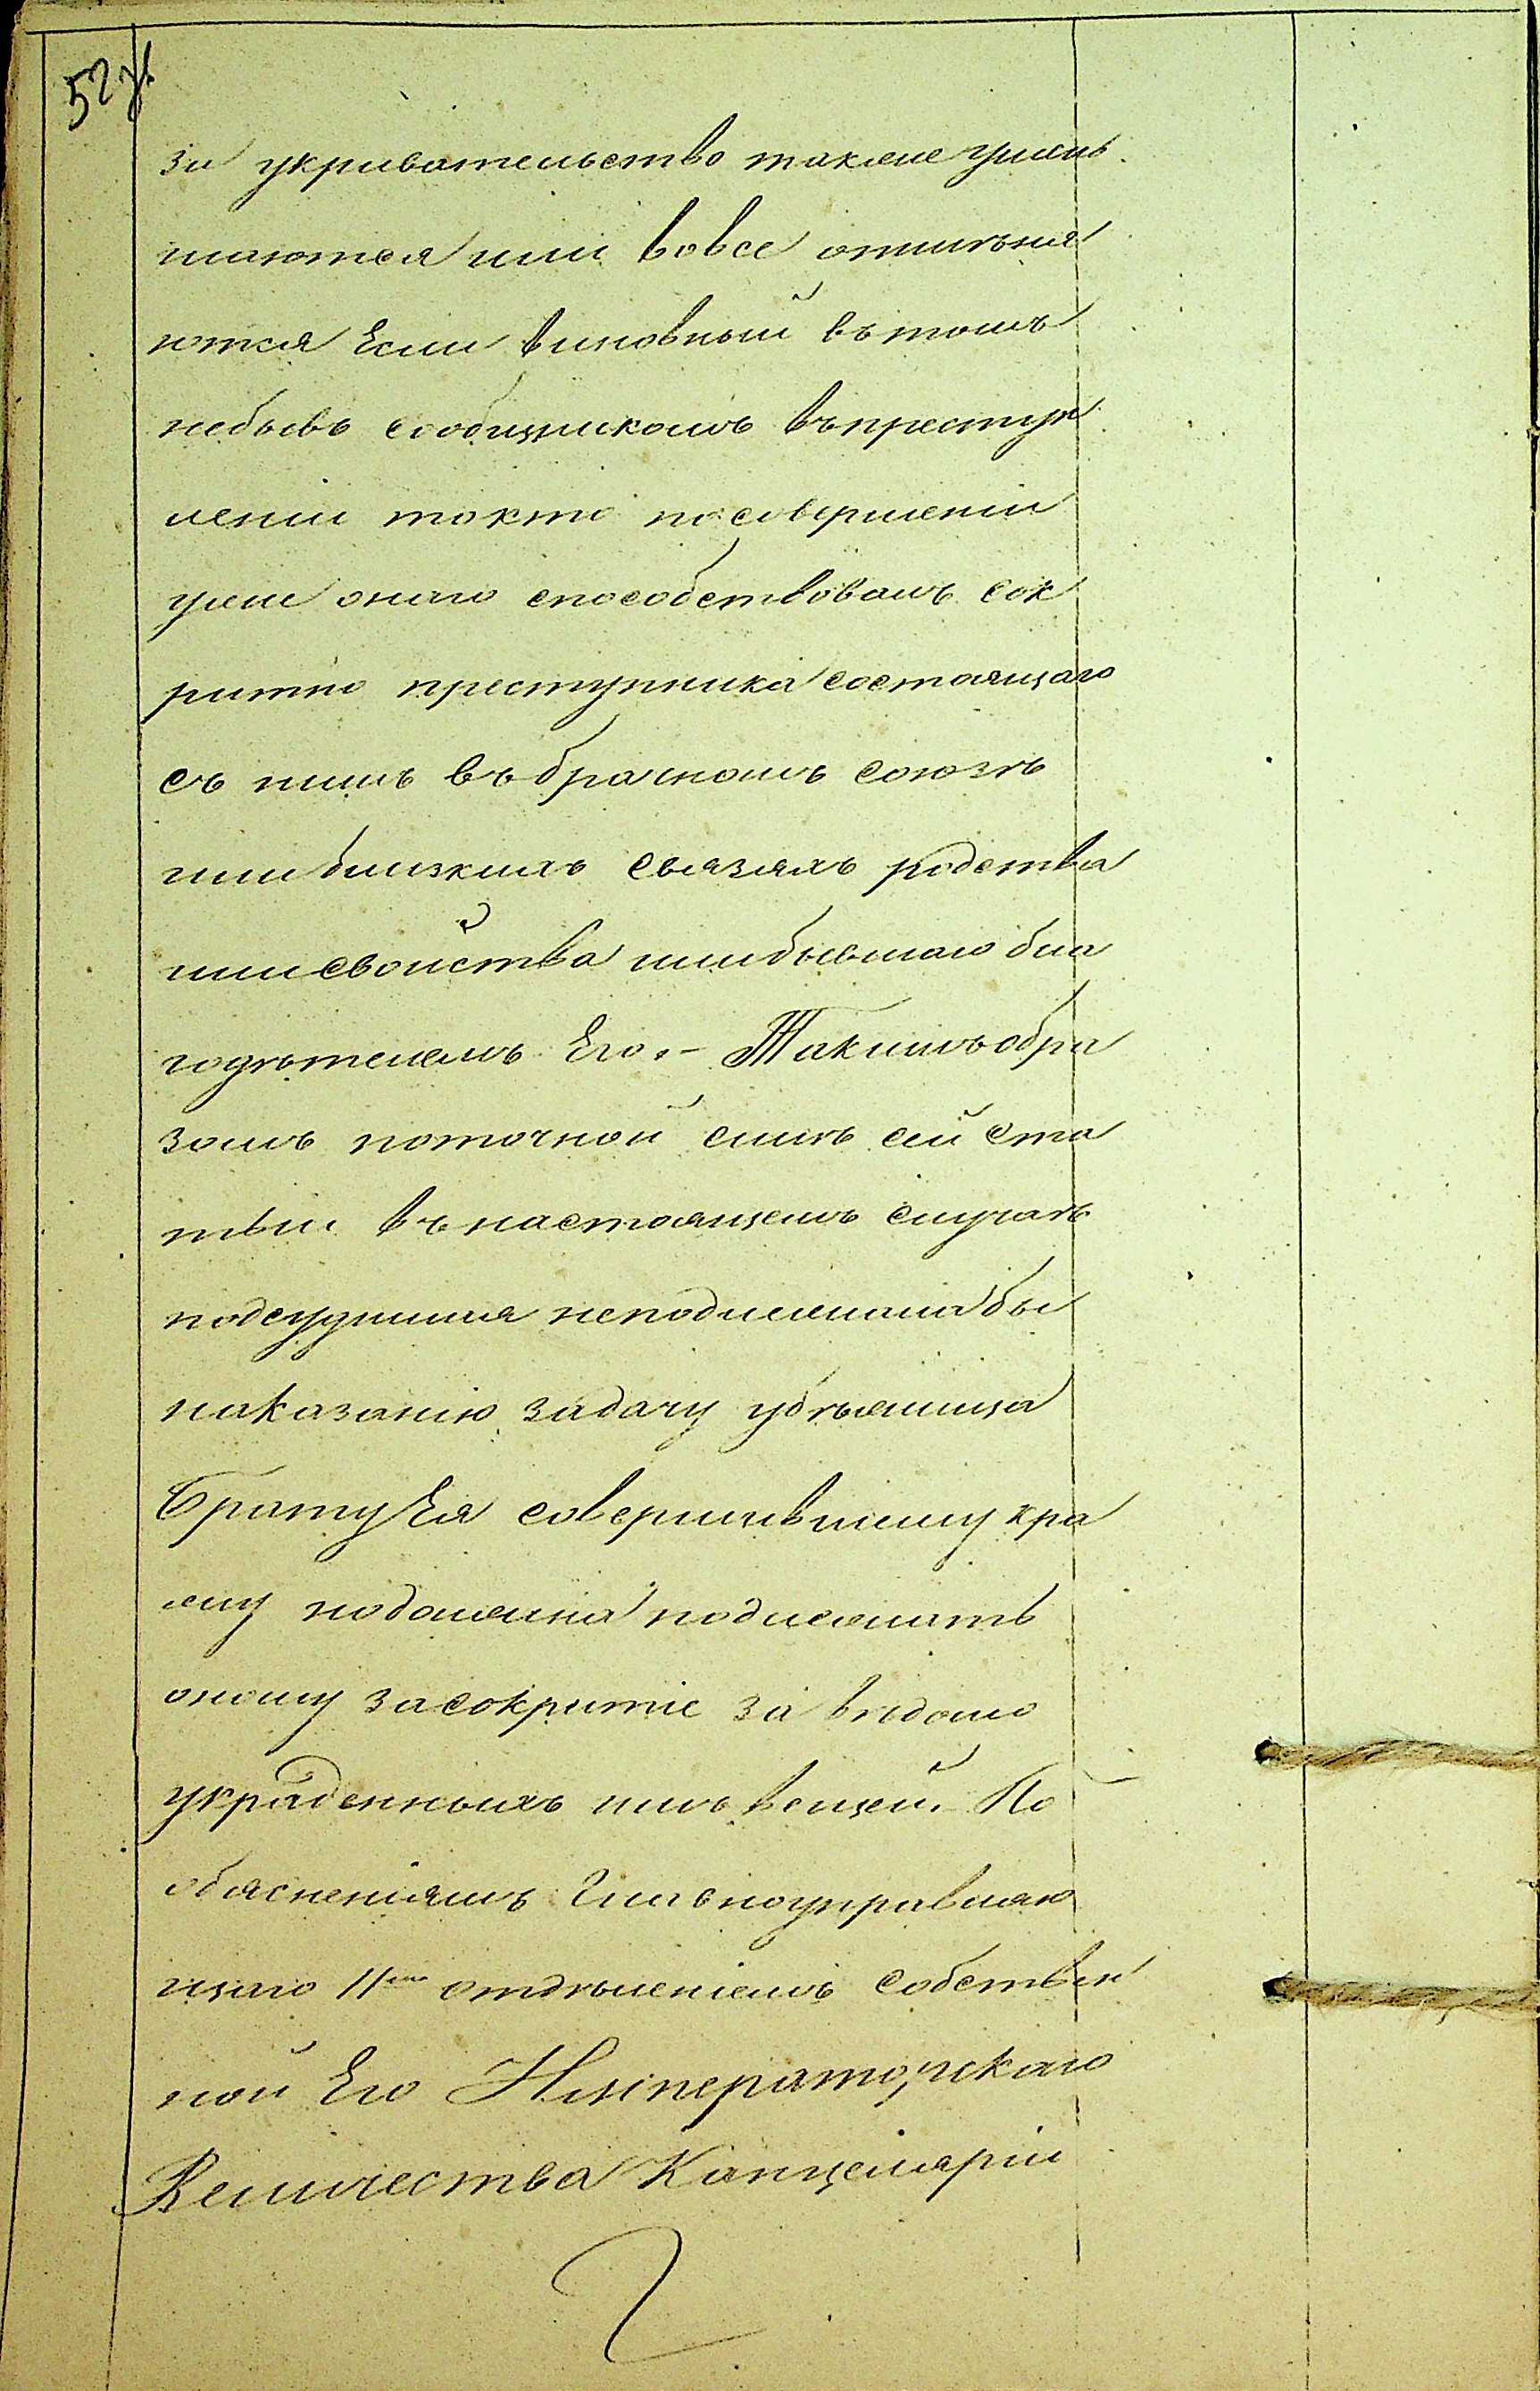 52 об
за укривательство также умень
шаются или вовсе отмѣня
ются Если виновный въ томъ
небывъ сообщникомъ въ преступ
леніи токмо по совершеніи
уже онаго способствовалъ сок
ритію преступника состоящаго
съ нимъ въ брачномъ союзѣ
или близкихъ связяхъ родства
или свойства или бывшаго бла
годѣтелемъ Его. – Такимъ обра
зомъ поточной силѣ сей ста
тьи въ настоящемъ случаѣ
подсудимая неподлежала бы
наказанію за дачу убѣжища
Брату Ея совершившему кра
жу но должна подлежать
оному за сокритіе за вѣдомо
украденныхъ имъ вещей. – По
обясненіямъ Главноуправляю
щаго II отдѣленіемъ собствен
ной Его Императорскаго
Величества Канцеляріи